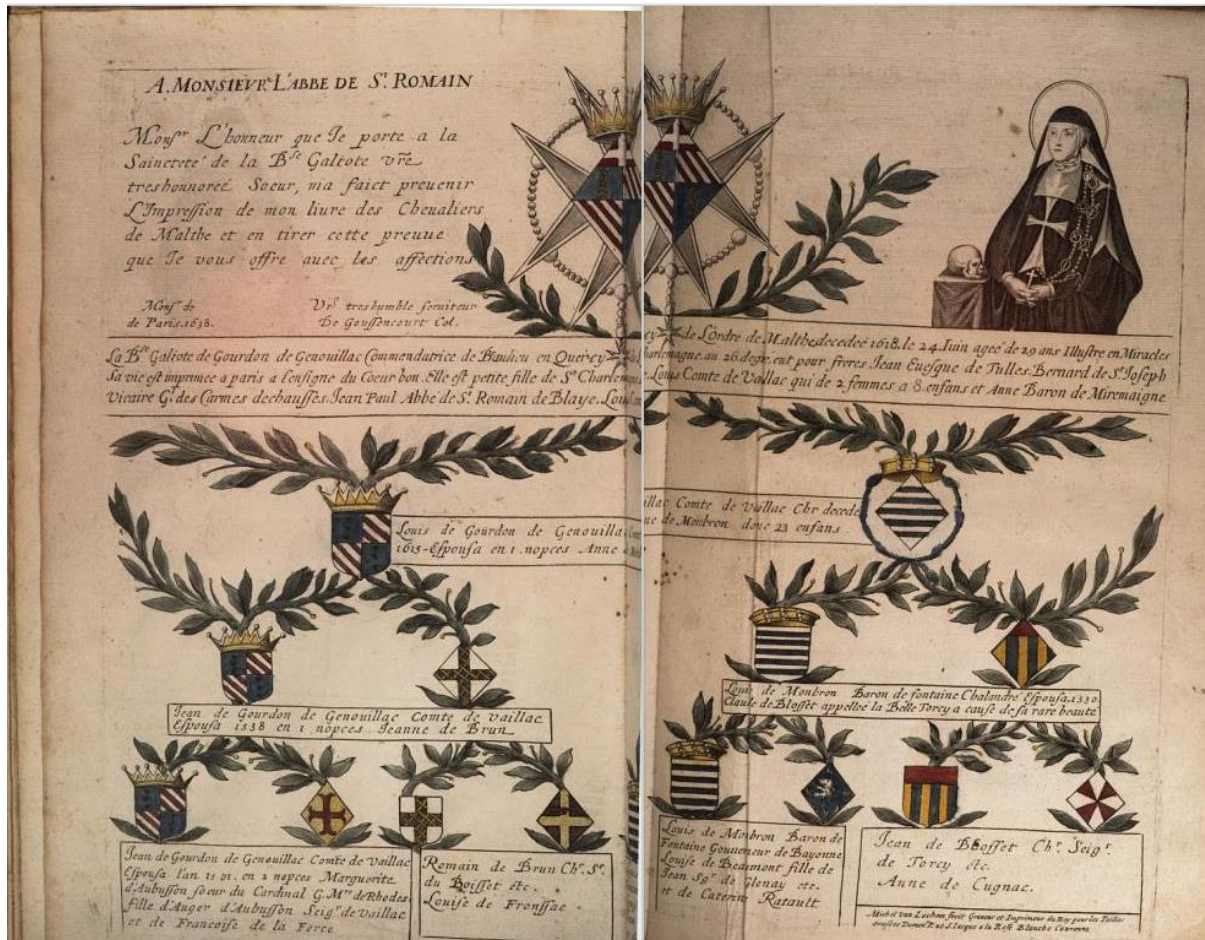 A. MONSIEVR. L'ABBE DE St. ROMAIN
Monsr L'honneur que Je porte a la
Saincteté de la Bse Galiote vre
treshonnoreé Soeur, ma faict preuenir
L'Impression de mon liure des Cheualiers
de Malthe et en tirer cette preuue
que Je vous offre auec les affections
Monsr de
de Paris. 1638.
Vre treshumble seruiteur
De Goussencourt Cel.
La Bse Galiote de Gourdon de Genouillac Commendatrice de Biaulieu en Quercy de L'ordre de Malthe decedeé 1618. le 24. Iuin ageé de 29 ans Illustre en Miracles
Sa vie est imprimeé a paris a l'ensigne du Coeur bon. Elle est petite fille de St Charlemagne au 26. degré ent pour freres Jean Euesque de Tulles. Bernard de St Joseph
Vicaire Gl. des Carmes dechaussés. Jean Paul Abbe de St. Romain de Blaye. Louis Comte de Vaillac qui de 2 femmes a 8 enfans et Anne Baron de Miremaigne
Louis de Gourdon de Genouillac Comte de Vaillac Chr decede
1615 - Espousa en 1. nopces Anne de Monbron donc 23 enfans
Jean de Gourdon de Genouillac Comte de vaillac
Espousa 1538 en 1 nopces Jeanne de Brun
Louis de Monbron Baron de fontaine Chalandré Espousa. 1530.
Claude de Blosset appelleé la Belle Torcy a cause de sa rare beaute
Jean de Gourdon de Genouillac Comte de Vaillac
Espousa l'an 1501. en 2 nopces Marguerite
d'Aubusson soeur du Cardinal G. Mre de Rhodes
fille d'Auger d'Aubusson Seigr de vaillac
et de Francoise de la Force
Romain de Brun Chr. Sr.
du Boisset &c.
Louise de Fronssac
Louis de Monbron Baron de
Fontaine Gouuerneur de Bayonne
Louise de Beaumont fille de
Jean Sgr de Glenay etc.
et de Caterine Ratault
Jean de Blosset Chr. Seigr.
de Torcy &c.
Anne de Cugnac.
Michel van Lochom fecit Graueur et Imprimeur du Roy pour les Tailles
douces Demeut Ruë S. Iacque a la Rose Blanche Couronné